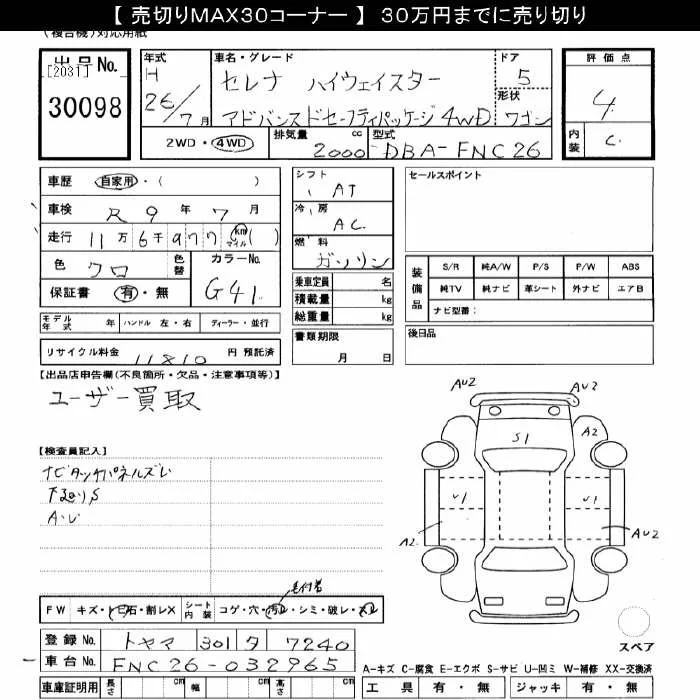 【 売切りMAX30コーナー 】 30万円までに売り切り
(複合機)対応用紙
出品No.
[2031]
30098
年式
H
26/7月
車名・グレード
セレナ ハイウェイスター
アドバンスドセーフティパッケージ 4WD
ドア
5
形状
ワゴン
評価点
4
内装
C
2WD・4WD
排気量
2000 cc
型式
DBA-FNC26
車歴 自家用・( )
車検 R 9 年 7 月
走行 11万6千977 km マイル( )
色 クロ 色替
カラーNo.
G41
保証書 有・無
モデル年式 年 ハンドル 左・右 ディーラー・並行
リサイクル料金 11810 円 預託済
シフト
AT
冷房
AC
燃料
ガソリン
乗車定員 名
積載量 kg
総重量 kg
書類期限
月 日
セールスポイント
装備品
S/R 純A/W P/S P/W ABS
純TV 純ナビ 革シート 外ナビ エアB
ナビ型番:
後日品
【出品店申告欄(不良箇所・欠品・注意事項等)】
ユーザー買取
【検査員記入】
ナビタッチパネルズレ
下廻りS
A・U
AU2
AU2
A2
S1
U1
U1
A2
AU2
スペア
FW キズ・ヒ石・割レX
シート内装 コゲ・穴・汚レ・シミ・破レ・スレ
登録No. トヤマ 301 タ 7240
車台No. FNC26-032965
車庫証明用 長さ cm 幅 cm 高さ cm
A-キズ C-腐食 E-エクボ S-サビ U-凹ミ W-補修 XX-交換済
工具 有・無 ジャッキ 有・無